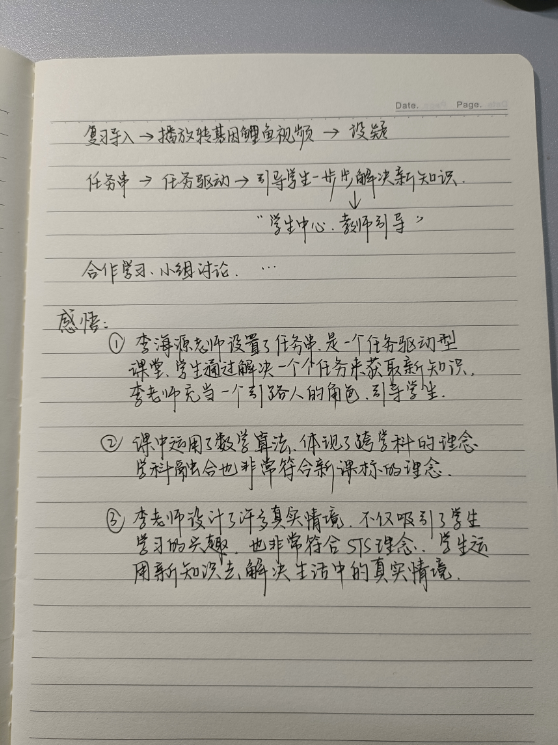 Date. Page.
复习导入→播放转基因鲤鱼视频→设疑
任务串→任务驱动→引导学生一步步解决新知识.
↓
“学生中心.教师引导”
合作学习、小组讨论. …
感悟:
① 李海源老师设置了任务串.是一个任务驱动型
课堂.学生通过解决一个个任务来获取新知识.
李老师充当一个引路人的角色.引导学生.
② 课中运用了数学算法.体现了跨学科的理念.
学科融合也非常符合新课标的理念.
③ 李老师设计了许多真实情境.不仅吸引了学生
学习的兴趣.也非常符合STS理念.学生运
用新知识去解决生活中的真实情境.